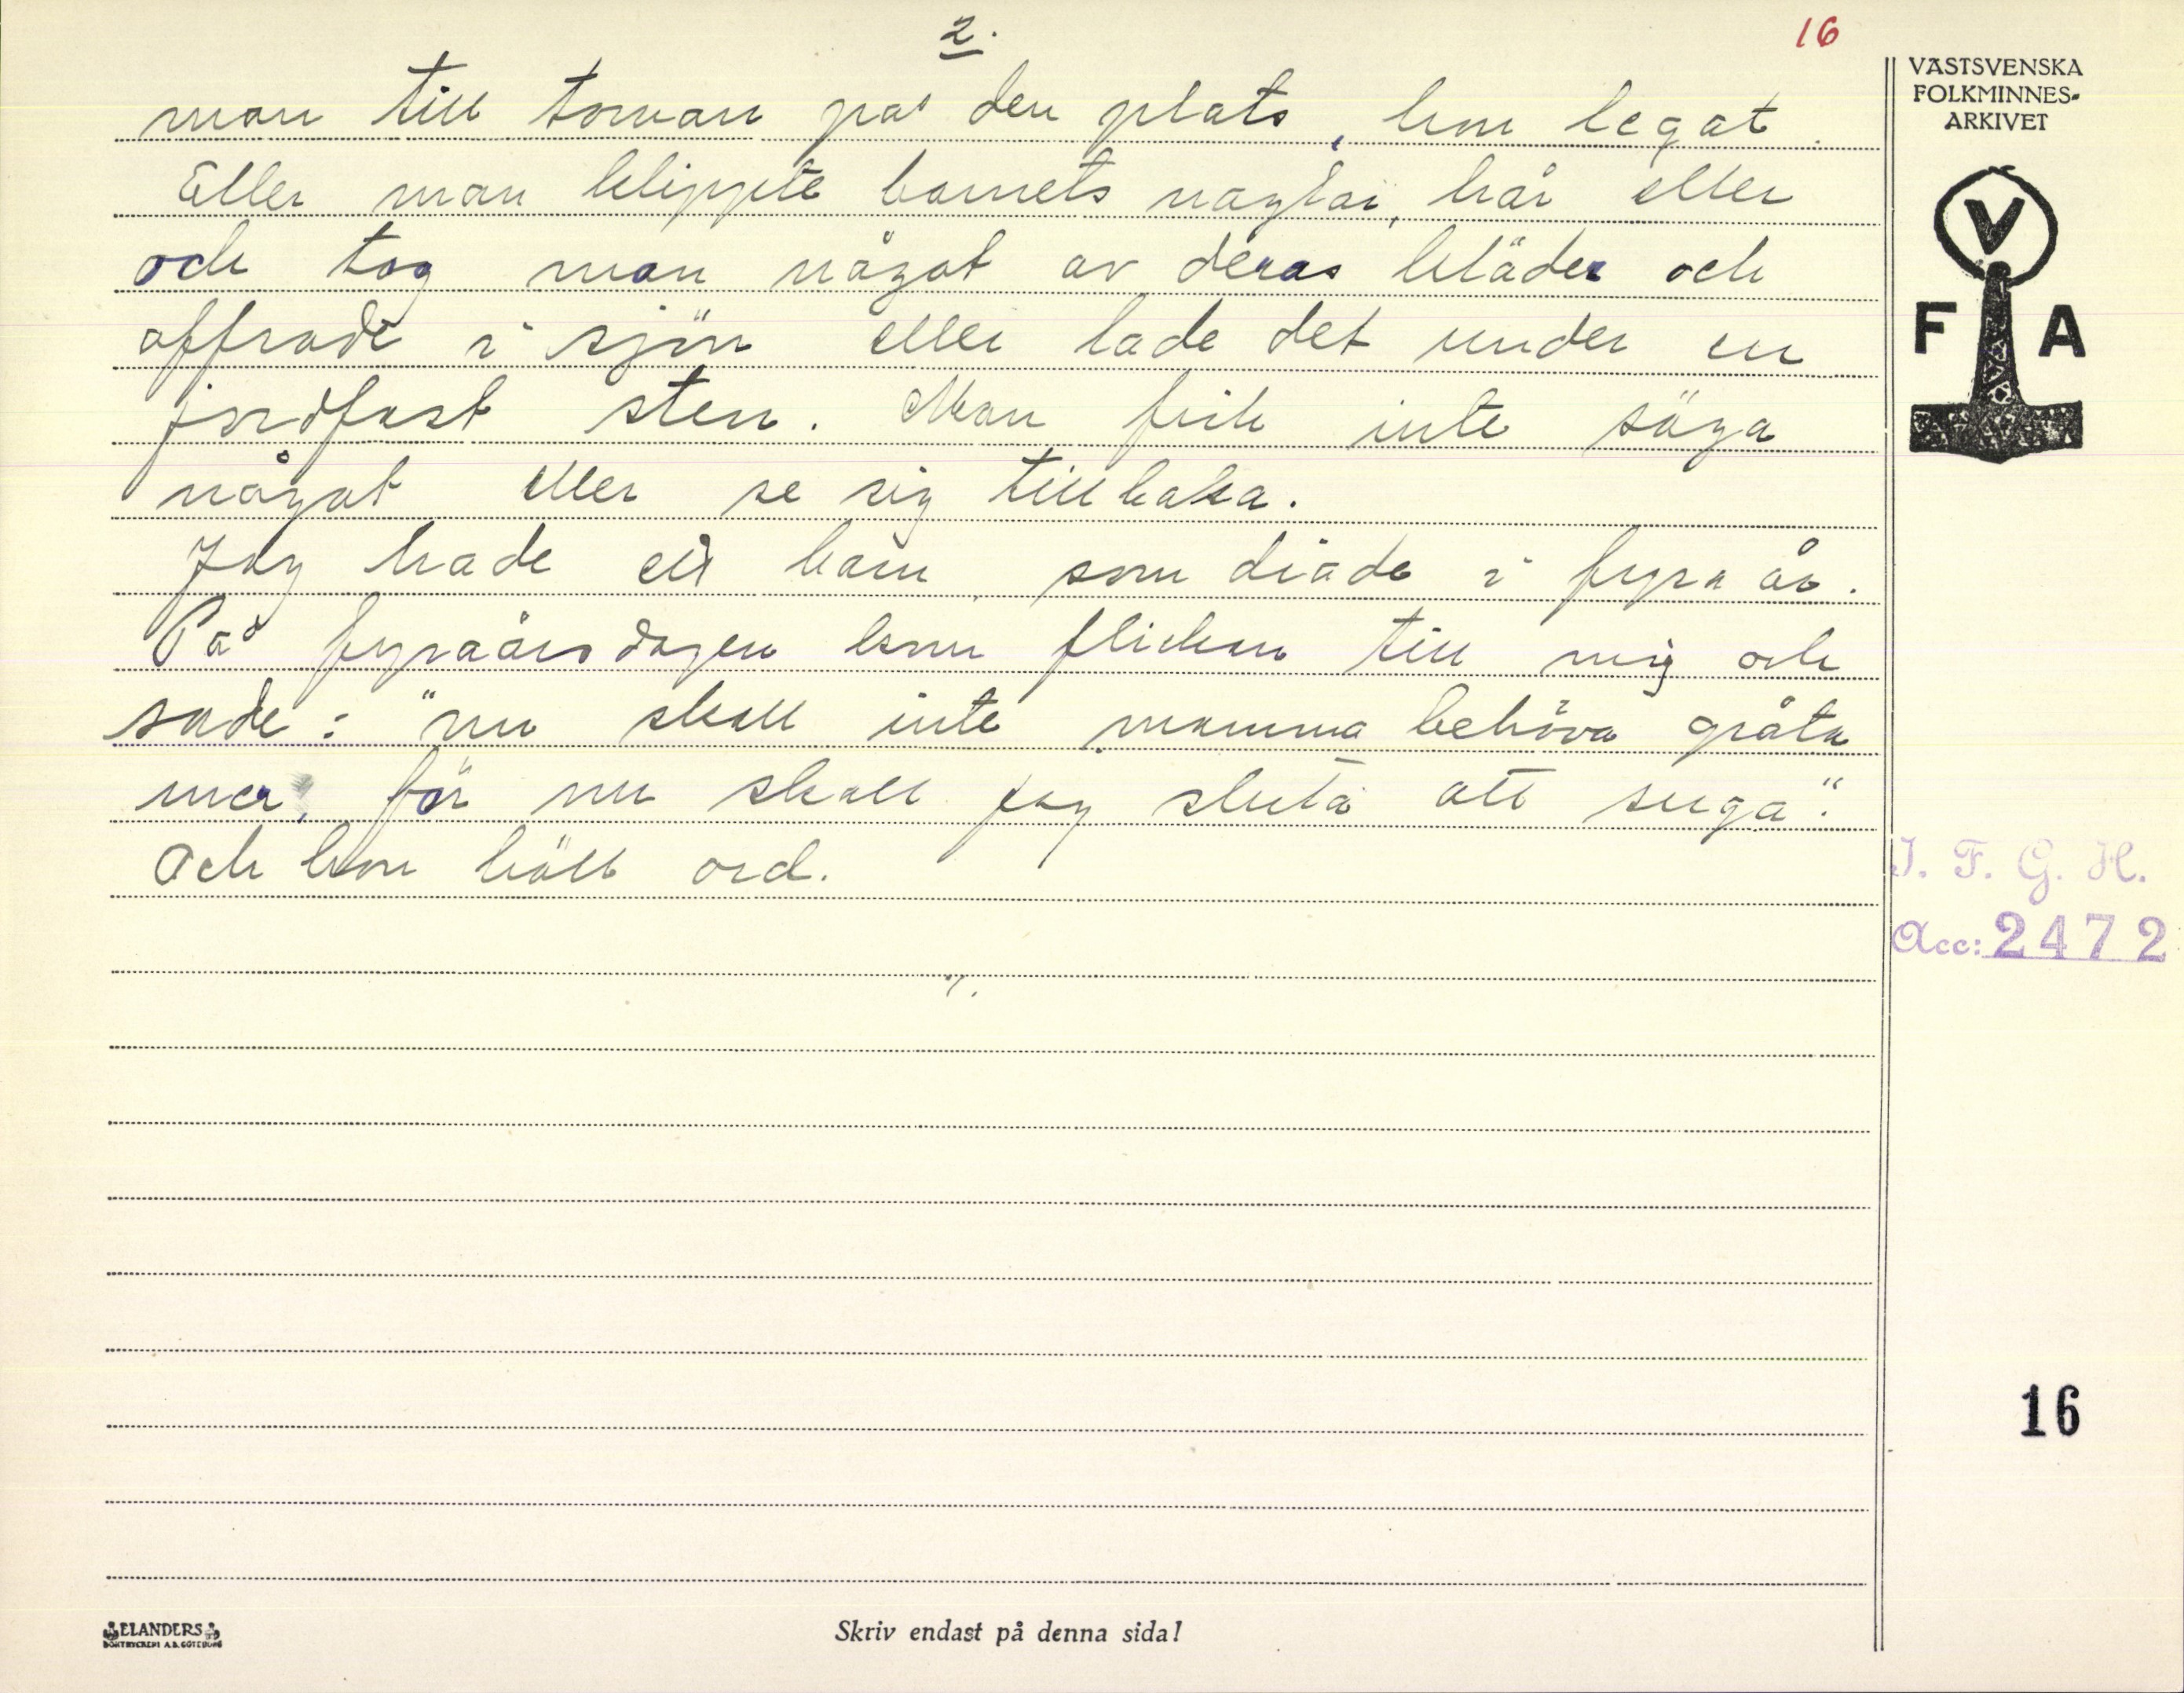 2.
16
man till torvan på den plats, hon legat.
Eller man klippte barnets naglar, hår eller
och tog man något av deras kläder och
offrade i sjön eller lade det under en
jordfast sten. Man fick inte säga
något eller se sig tillbaka.
Jag hade ett barn, som diade i fyra år.
På fyraårsdagen kom flickan till mig och
sade: "nu skall inte mamma behöva gråta
mer, för nu skall jag sluta att suga".
Och hon höll ord.
VÄSTSVENSKA
FOLKMINNES-
ARKIVET
V
F A
I. F. G. H.
Acc: 2472
16
ELANDERS
BOKTRYCKERI A.B. GÖTEBORG
Skriv endast på denna sida!